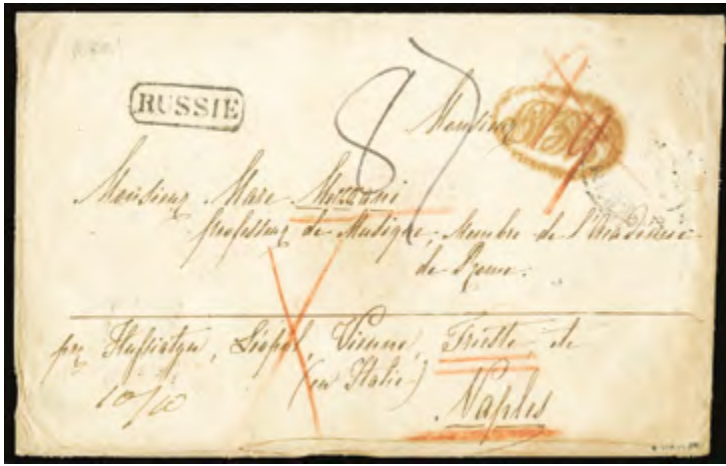 RUSSIE
87
Monsieur
Monsieur Marc
professeur de Musique, Membre de l'Académie
de Rome.
par Hussiatyn, Léopol, Vienne, Trieste, et
(en Italie)
10/10
Naples